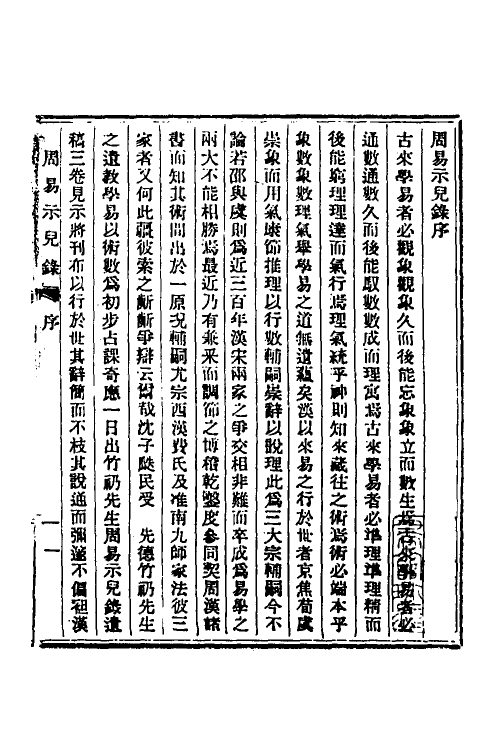 周易示兒錄序
古來學易者必觀象觀象久而後能忘象象立而數生焉古來學易者必
通數通數久而後能馭數數成而理寓焉古來學易者必準理準理精而
後能窮理理達而氣行焉理氣統乎神則知來藏往之術焉術必端本乎
象數象數理氣舉學易之道無遺蘊矣漢以來易之行於世者京焦荀虞
崇象而用氣康節推理以行數輔嗣崇辭以說理此爲三大宗輔嗣今不
論若邵與虞則爲近三百年漢宋兩家之爭交相非難而卒成爲易學之
兩大不能相勝焉最近乃有兼采而調節之博稽乾鑿度參同契周漢諸
書而知其術間出於一原況輔嗣尤宗西漢費氏及淮南九師家法彼三
家者又何此疆彼索之齗齗爭辯云爾哉沈子瓞民受　先德竹礽先生
之遺敎學易以術數爲初步占課奇應一日出竹礽先生周易示兒錄遺
稿三卷見示將刊布以行於世其辭簡而不枝其說通而彌邃不偏袒漢
周易示兒錄　序
一